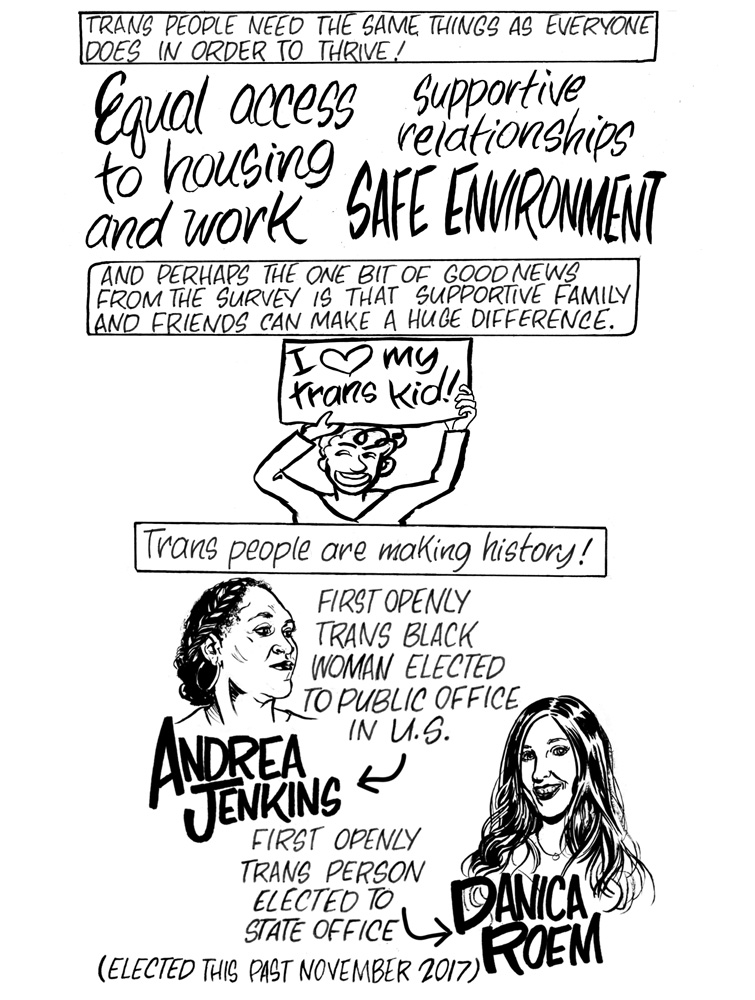 TRANS PEOPLE NEED THE SAME THINGS AS EVERYONE
DOES IN ORDER TO THRIVE!
Equal access
to housing
and work
supportive
relationships
SAFE ENVIRONMENT
AND PERHAPS THE ONE BIT OF GOOD NEWS
FROM THE SURVEY IS THAT SUPPORTIVE FAMILY
AND FRIENDS CAN MAKE A HUGE DIFFERENCE.
I ♡ my
trans kid!!
Trans people are making history!
FIRST OPENLY
TRANS BLACK
WOMAN ELECTED
TO PUBLIC OFFICE
IN U.S.
ANDREA
JENKINS
FIRST OPENLY
TRANS PERSON
ELECTED TO
STATE OFFICE
DANICA
ROEM
(ELECTED THIS PAST NOVEMBER 2017)